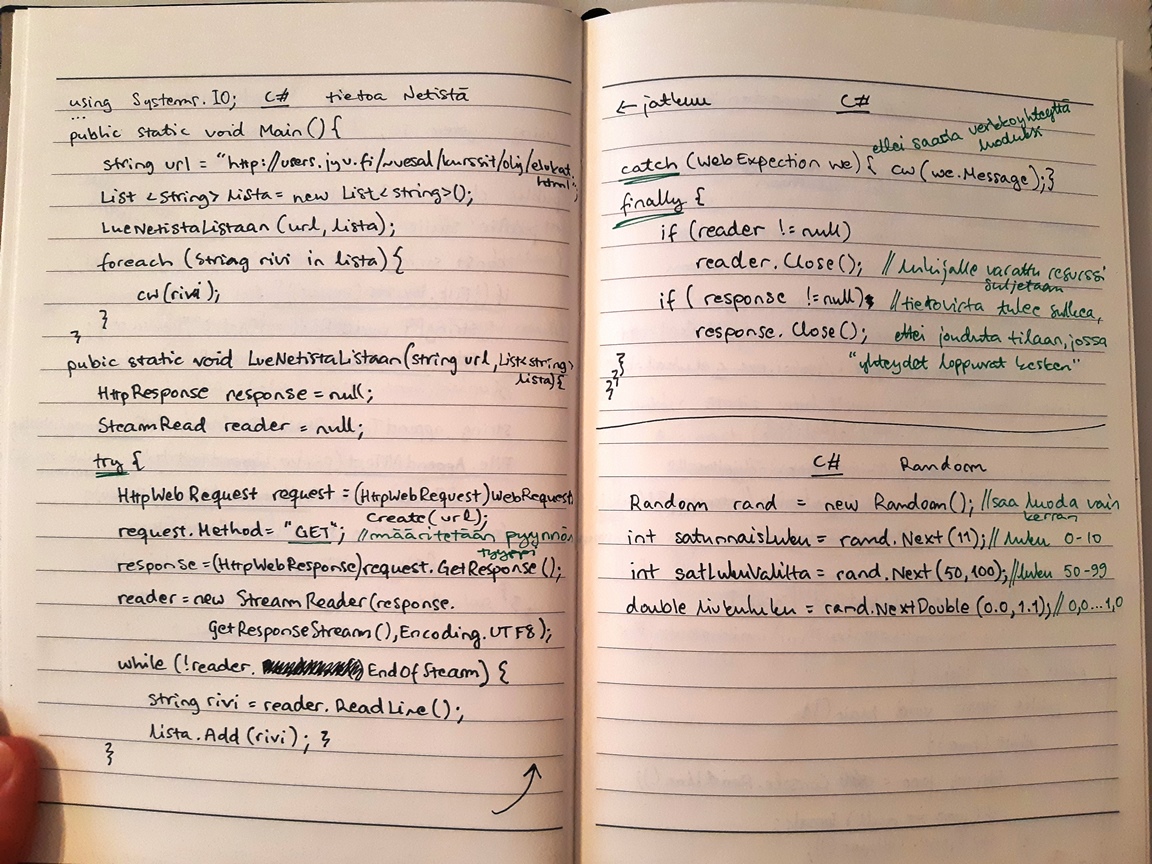 using Systems.IO; C# tietoa Netistä
...
public static void Main () {
string url = "http://users.jyu.fi/~vesal/kurssit/olij/elokat.
html";
List <string> lista = new List<string>();
LueNetistaListaan (url, lista);
foreach (string rivi in lista) {
cw(rivi);
}
}
pubic static void LueNetistaListaan (string url, List<string>
lista) {
HttpResponse response = null;
SteamRead reader = null;
try {
HttpWebRequest request = (HttpWebRequest) WebRequest
create(url);
request.Method = "GET"; //määritetään pyynnön
tyyppi
response = (HttpWebResponse) request.GetResponse ();
reader = new StreamReader (response.
GetResponseStream (), Encoding.UTF8);
while (!reader. EndOfSteam) {
string rivi = reader.ReadLine ();
lista.Add (rivi); }
}
← jatkuu C#
ettei saada verkkoyhteyttä
catch (WebExpection we) { cw(we.Message);}
finally {
if (reader != null)
reader.Close(); //lukijalle varattu resurssi
suljetaan
if ( response != null) //tietovirta tulee sulkea,
response.Close(); ettei jouduta tilaan, jossa
} "yhteydet loppuvat kesken"
}
}
C# Random
Random rand = new Random(); //saa luoda vain
kerran
int satunnaisLuku = rand.Next (11); //luku 0-10
int satLukuValilta = rand.Next (50,100); //luku 50-99
double liukuluku = rand.NextDouble (0.0,1.1); //0,0...1,0